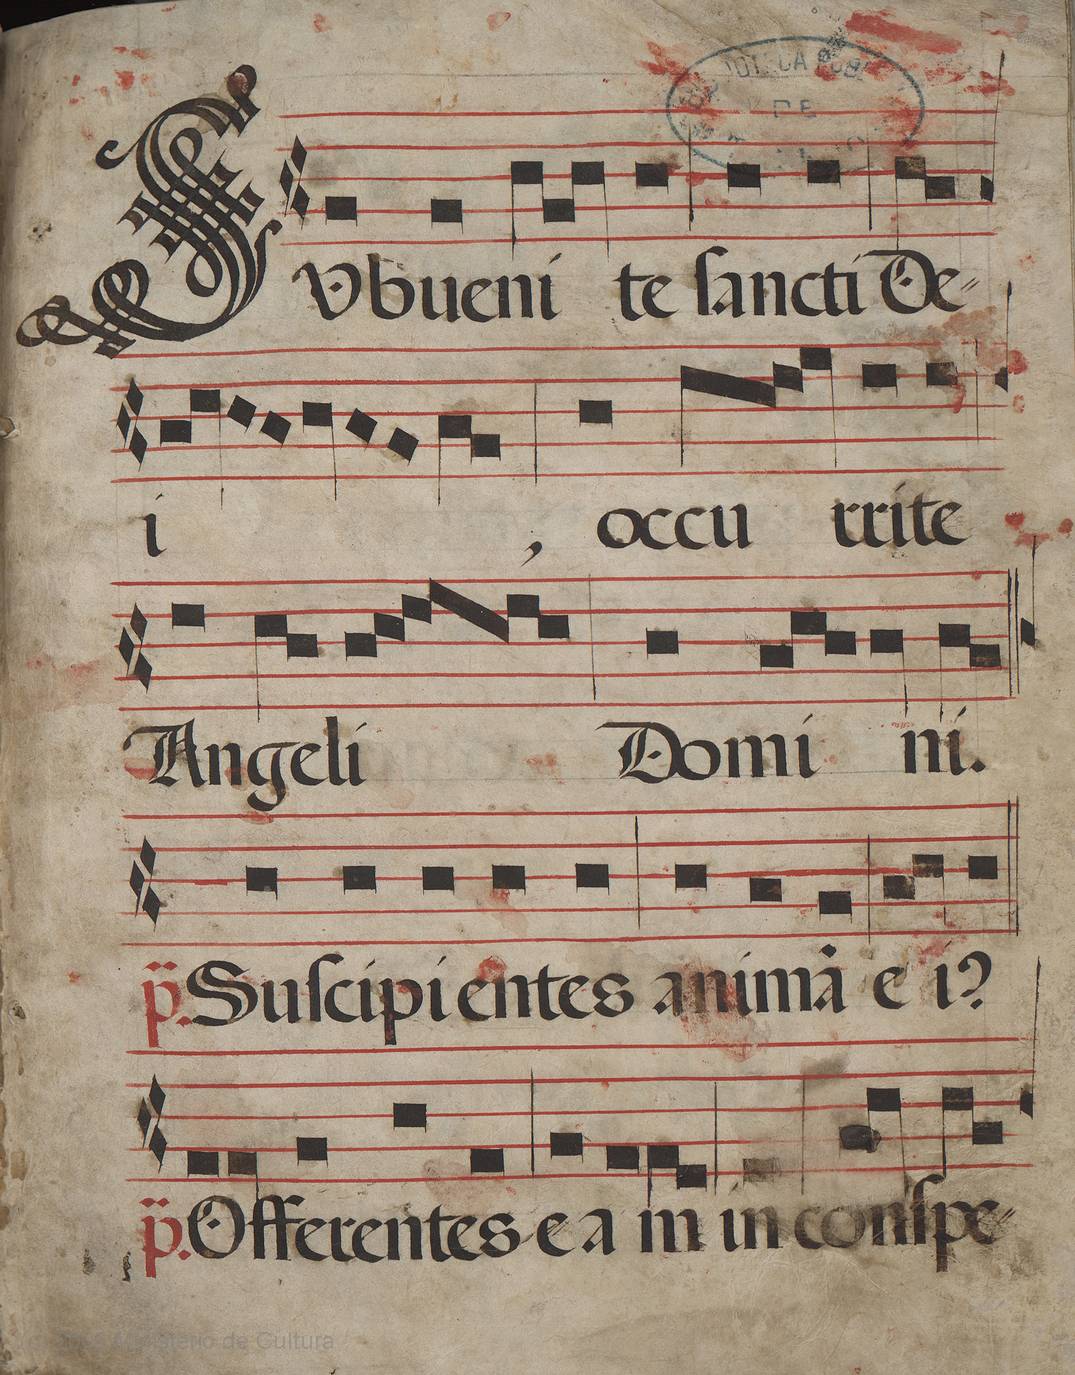 BIBLIOTECA PUB
DE
Subueni te sancti De-
i , occu rrite
Angeli Domi ni.
p̈. Suscipientes animã e i?
p̈. Offerentes e a m in conspe-
Ministerio de Cultura